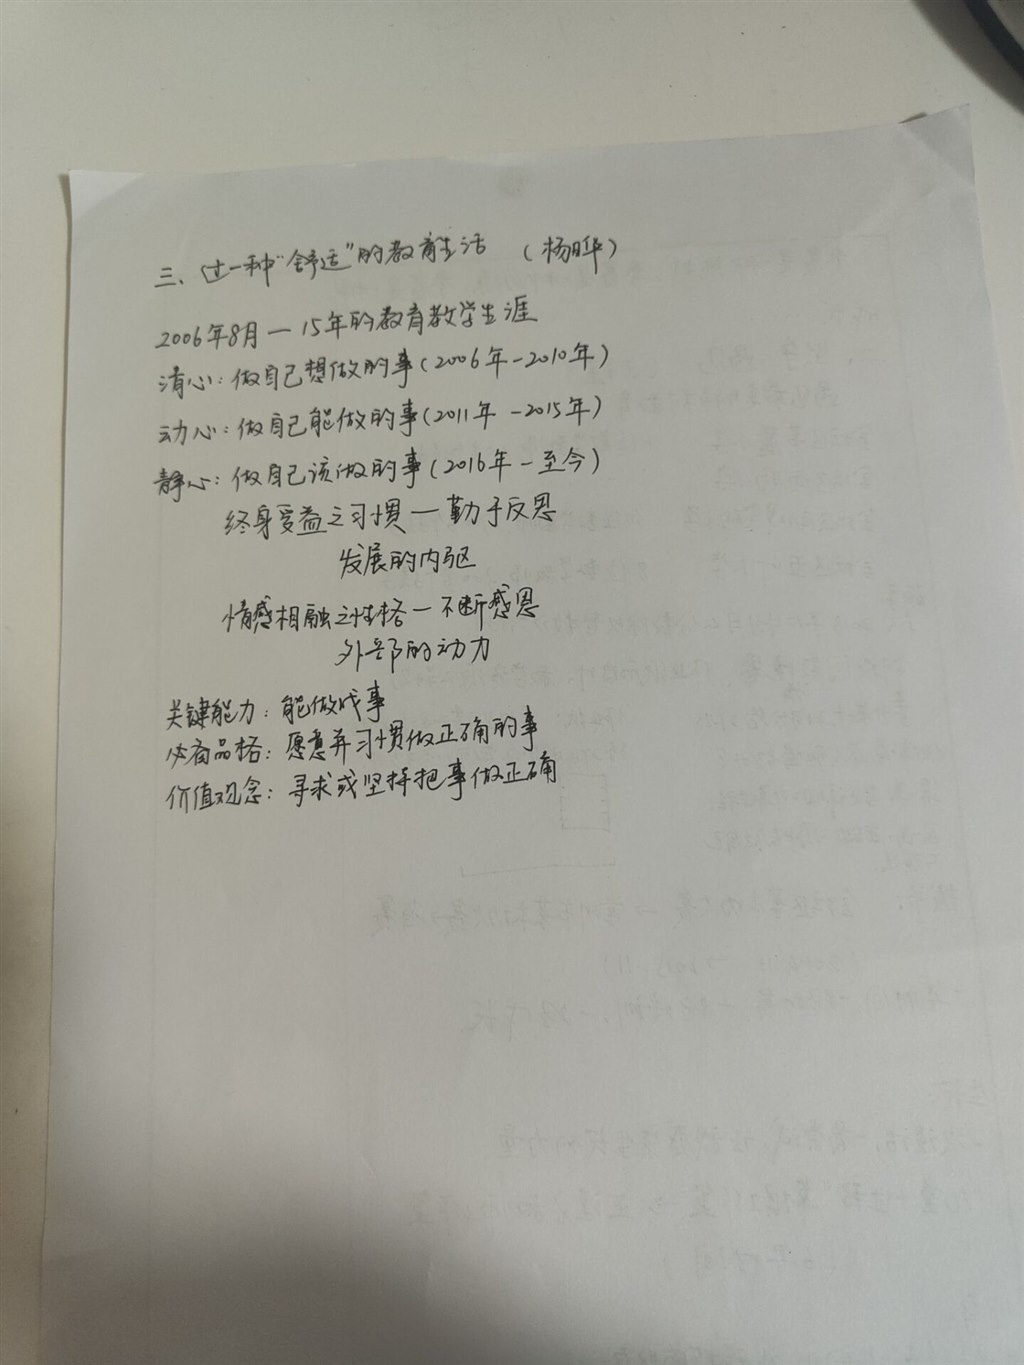 三、过一种“舒适”的教育生活 （杨晔）
2006年8月—15年的教育教学生涯
清心：做自己想做的事（2006年-2010年）
动心：做自己能做的事（2011年-2015年）
静心：做自己该做的事（2016年-至今）
终身受益之习惯—勤于反思
发展的内驱
情感相融之性格—不断感恩
外部的动力
关键能力：能做成事
必备品格：愿意并习惯做正确的事
价值观念：寻求或坚持把事做正确